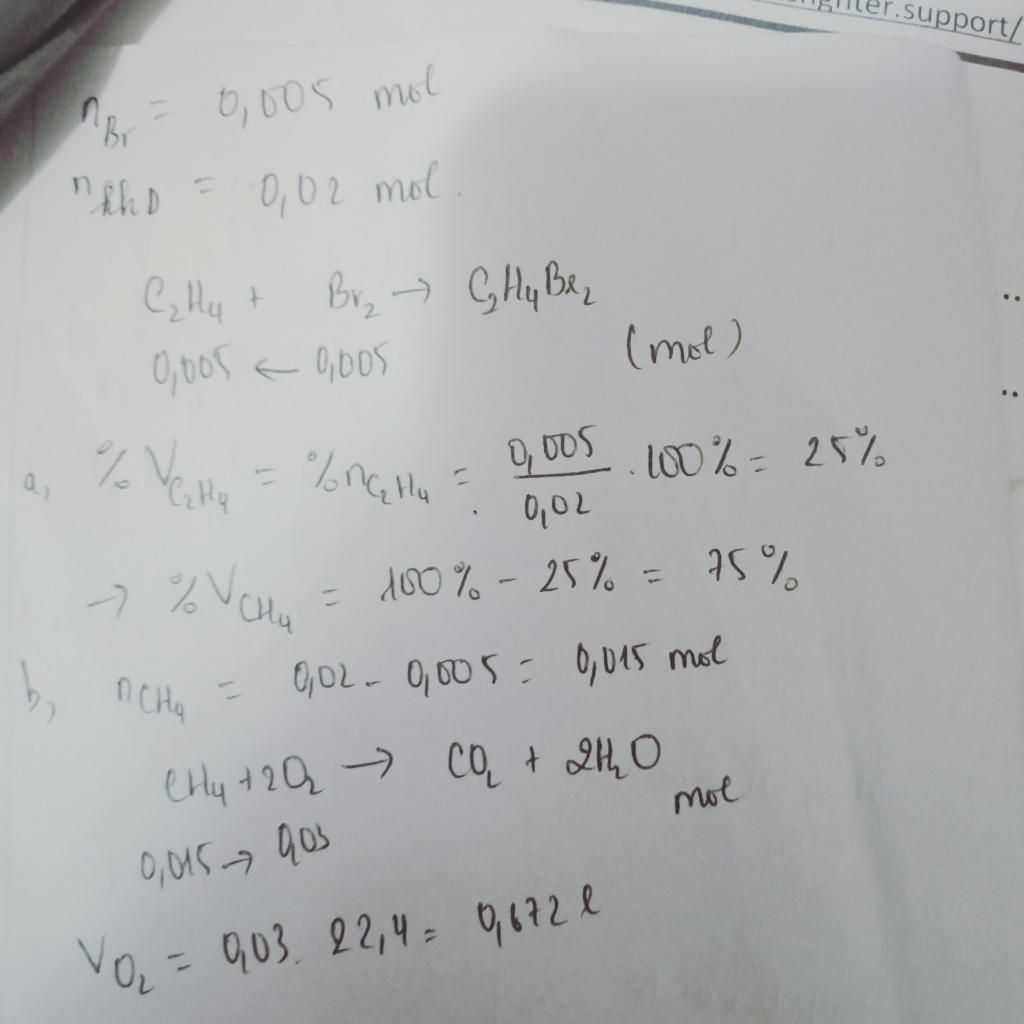 ghter.support/
n_Br = 0,005 mol
n_hhD = 0,02 mol.
C₂H₄ + Br₂ → C₂H₄Br₂
0,005 ← 0,005 (mol)
a, %V_C₂H₄ = %n_C₂H₄ = 0,005/0,02 . 100% = 25%
→ %V_CH₄ = 100% - 25% = 75%
b, n_CH₄ = 0,02 - 0,005 = 0,015 mol
CH₄ + 2O₂ → CO₂ + 2H₂O
0,015 → 0,03 mol
V_O₂ = 0,03. 22,4 = 0,672 l